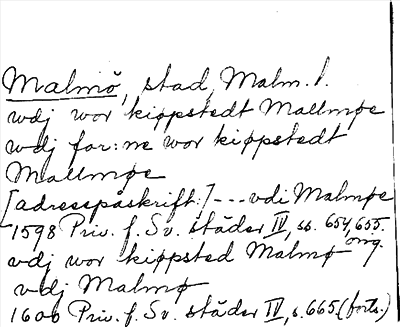 Malmö, stad, Malm. l.
wdj wor kiøpstedt Mallmøe
wdj for:ne wor kiøpstedt
Mallmøe
[adresspåskrift:] --- vdi Malmøe
1598 Priv. f. Sv. städer IV, ss. 654, 655.
orig.
vdj wor kiøpsted Malmø
vdj Malmø
1606 Priv. f. Sv. städer IV, s. 665 (forts.)